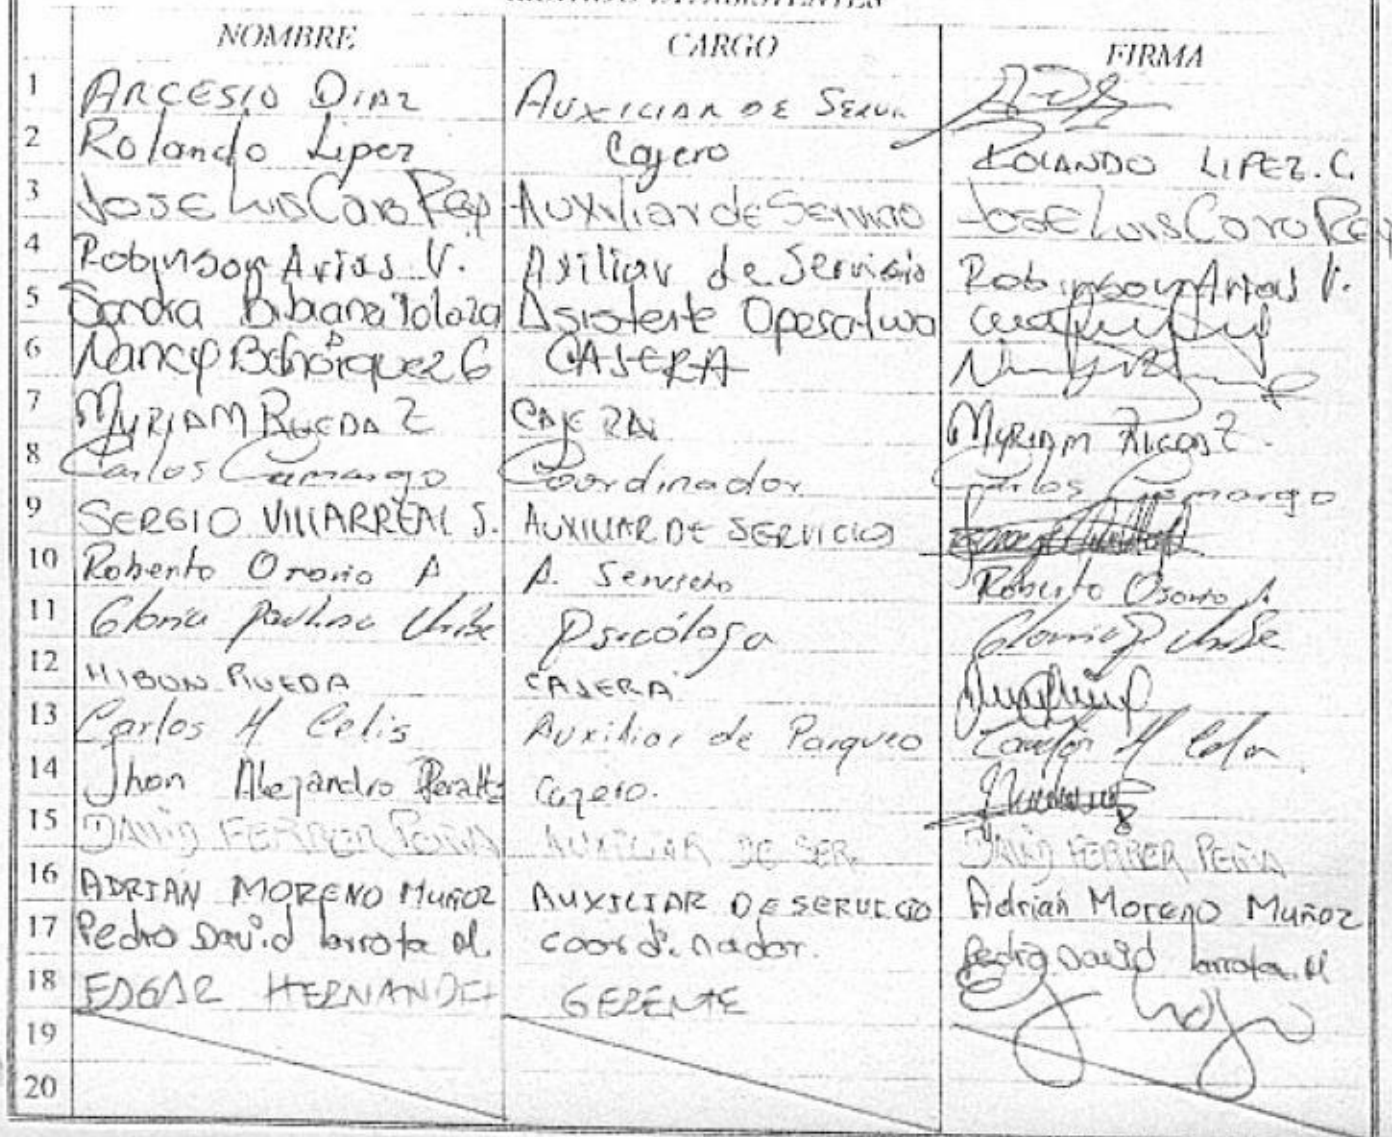 NOMBRE CARGO FIRMA
1 ARCESIO DIAZ AUXILIAR DE SERV.
2 Rolando Lipez Cajero ROLANDO LIPEZ.C.
3 JOSE LUIS Caro Rey Auxiliar de Servicio JOSE LUIS Caro Rey
4 Robinson Arias V. Axiliar de Servicio Robinson Arias V.
5 Sandra Bibiana Toloza Asistente Operativa
6 Nancy Bohorquez G CAJERA
7 MYRIAM RUEDA Z CAJERA MYRIAM RUEDA Z.
8 Carlos Camargo Coordinador Carlos Camargo
9 SERGIO VILLARREAL S. AUXILIAR DE SERVICIO
10 Roberto Osorio A A. Servicio Roberto Osorio A.
11 Gloria Paulina Uribe Psicóloga Gloria P Uribe
12 RUEDA CAJERA
13 Carlos H Celis Auxiliar de Parqueo Carlos H Celis
14 Jhon Alejandro Peralta Cajero.
15 DAVID FERRER PEÑA AUXILIAR DE SER. DAVID FERRER PEÑA
16 ADRIAN MORENO MUÑOZ AUXILIAR DE SERVICIO Adrian Moreno Muñoz
17 Pedro David larrota M. coordinador. Pedro David larrota.M
18 EDGAR HERNANDEZ GERENTE
19
20